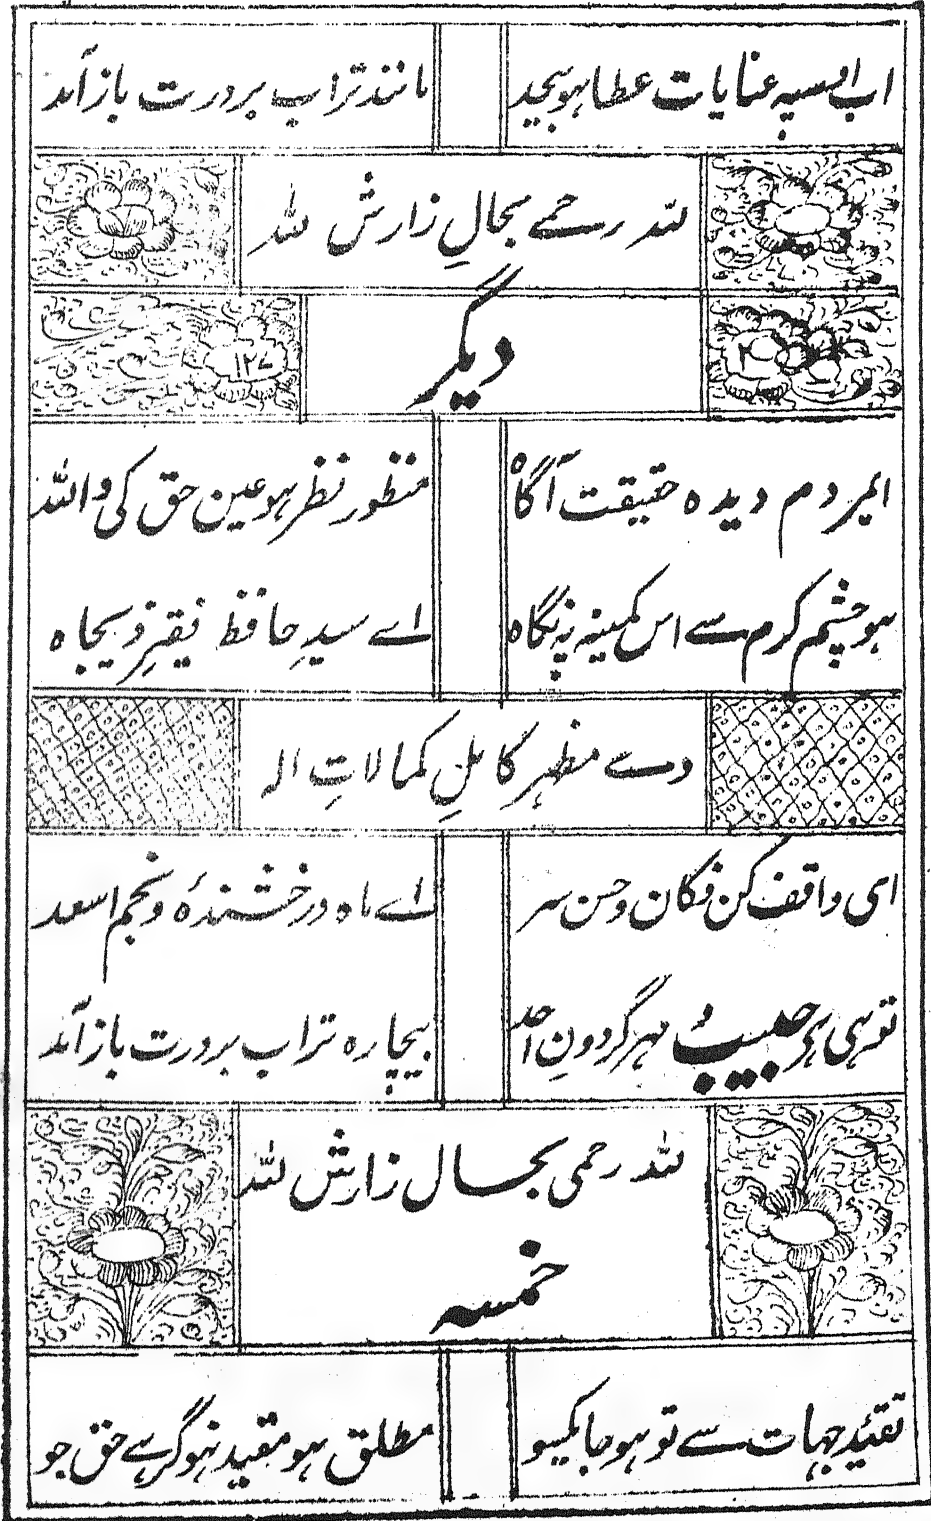 اب اسپہ عنایات عطا ہو بیحد
مانند تراب بر درت باز آمد
للہ رحمے بحالِ زارش للہ
دیگر
۲
۱۲۷
ایمردم دیدہ حقیقت آگاہ
منظور نظر ہو عین حق کی واللہ
ہو چشم کرم سے اس کمینہ پہ نگاہ
اے سیدِ حافظ فقیرِ ذیجاہ
وے مظہرِ کاملِ کمالاتِ الہ
ای واقف کن فکان و حسن سر
اے ماہ درخشندۂ و نجم اسعد
تو ہی ہی حبیب و مہر گردونِ احد
بیچارہ تراب بر درت باز آمد
للہ رحمی بحال زارش للہ
خمسہ
تقئید جہات سے تو ہو جا یکسو
مطلق ہو مقید نہو گر ہے حق جو